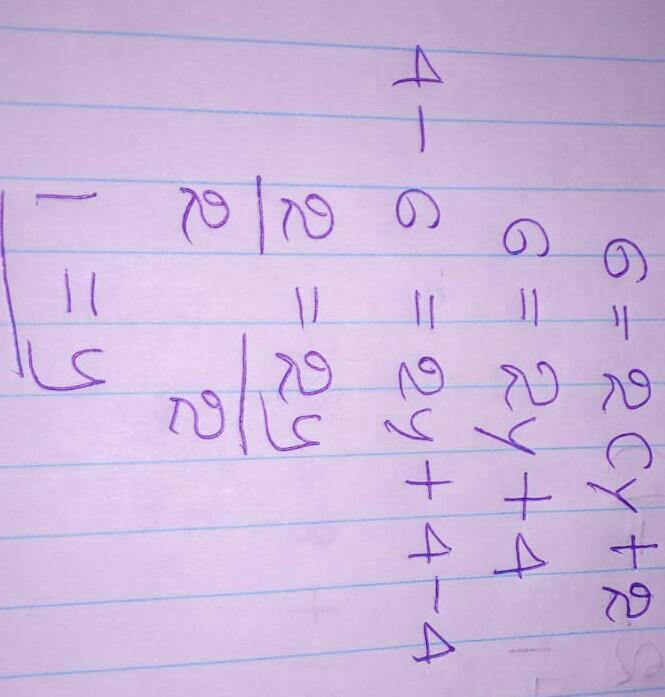 6 = 2(y+2
6 = 2y + 4
4 - 6 = 2y + 4 - 4
2 = 2y
2 2
1 = y